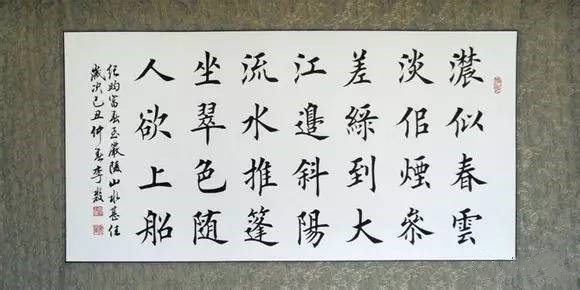 濃似春雲
淡佀煙叅
差綠到大
江邊斜陽
流水推篷
坐翠色隨
人欲上船
纪昀富春至嚴陵山水甚佳
歲次己丑仲李